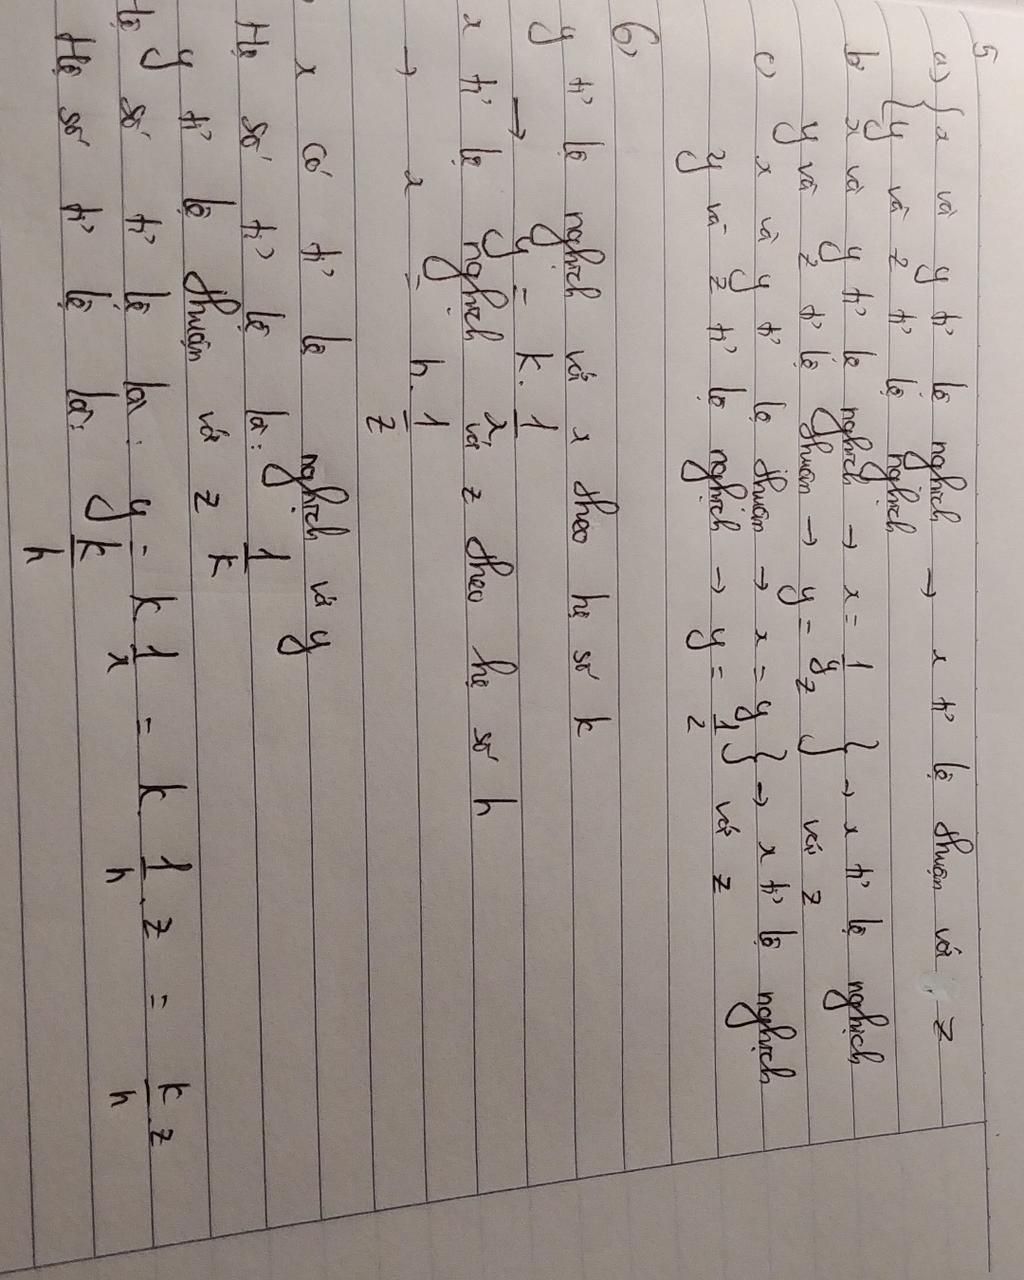 5
a) { x và y tỉ lệ nghịch → x tỉ lệ thuận với z
{ y và z tỉ lệ nghịch
b) x và y tỉ lệ nghịch → x = 1/y } → x tỉ lệ nghịch
y và z tỉ lệ thuận → y = z } với z
c) x và y tỉ lệ thuận → x = y } → x tỉ lệ nghịch
y và z tỉ lệ nghịch → y = 1/z } với z
6)
y tỉ lệ nghịch với x theo hệ số k
→ y = k. 1/x
x tỉ lệ nghịch với z theo hệ số h
→ x = h. 1/z
x có tỉ lệ nghịch với y
Hệ số tỉ lệ là: 1/k
y tỉ lệ thuận với z
Hệ số tỉ lệ là: y = k 1/x = k 1/h . z = kz/h
Hệ số tỉ lệ là: k/h